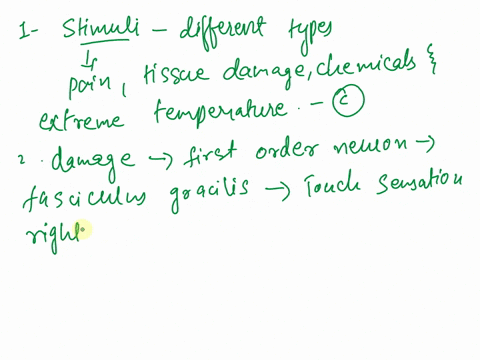 1- Stimuli - different types
pain, tissue damage, chemicals &
extreme temperature. - C
2. damage → first order neuron →
fasciculus gracilis → Touch sensation
right